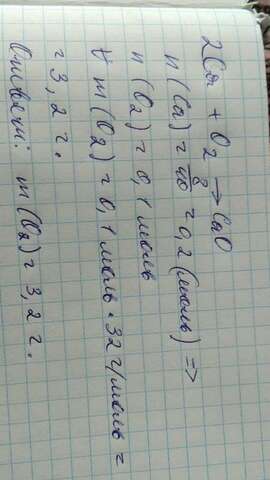 2Ca + O₂ → CaO
n(Ca) = 8/40 = 0,2 (моль) =>
n(O₂) = 0,1 моль
m(O₂) = 0,1 моль · 32 г/моль =
= 3,2 г.
Ответ: m(O₂) = 3,2 г.